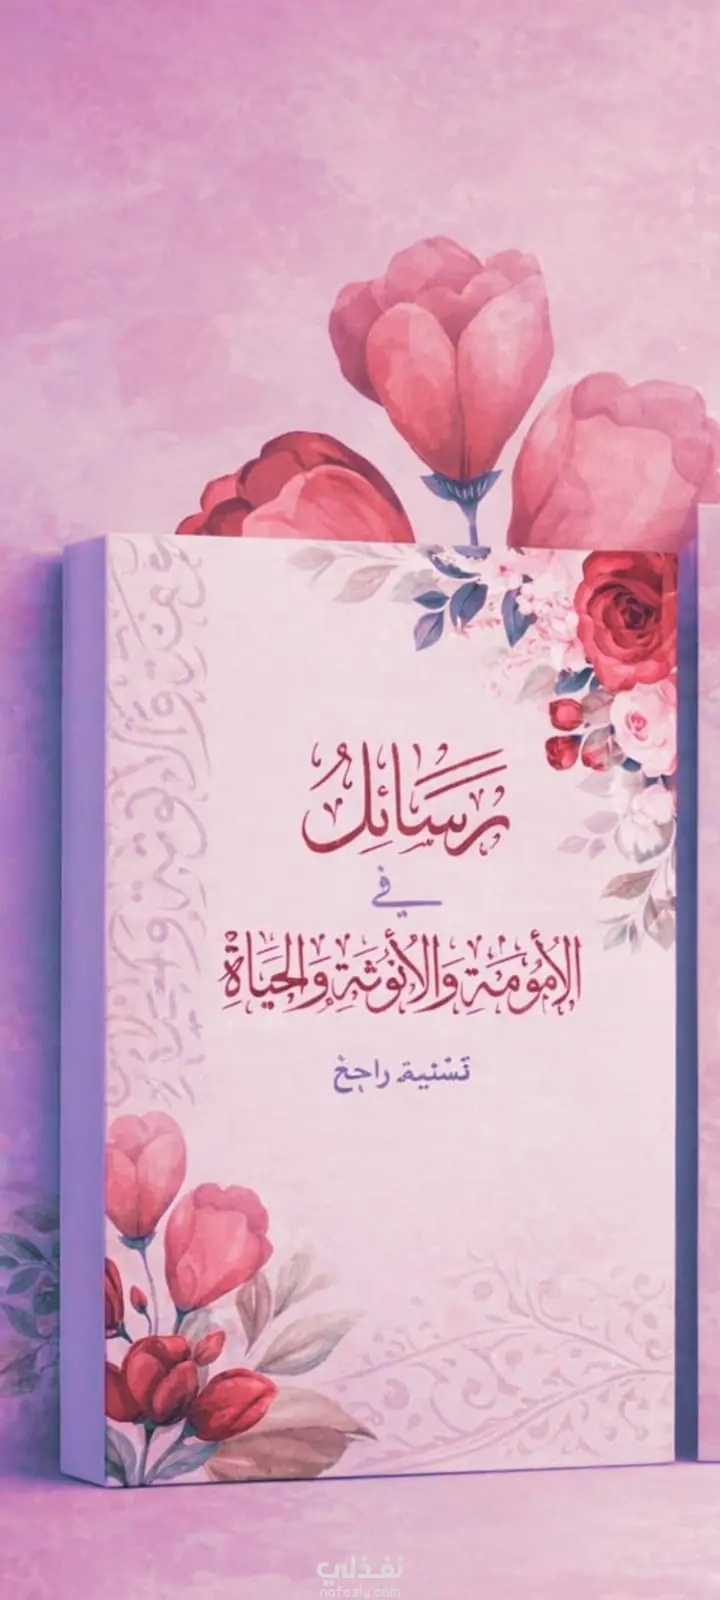 رَسَائِلُ
في
الأُمُومَةِ وَالأُنُوثَةِ وَالحَيَاةِ
تسنية راجخ
نفذلي
nafezly.com